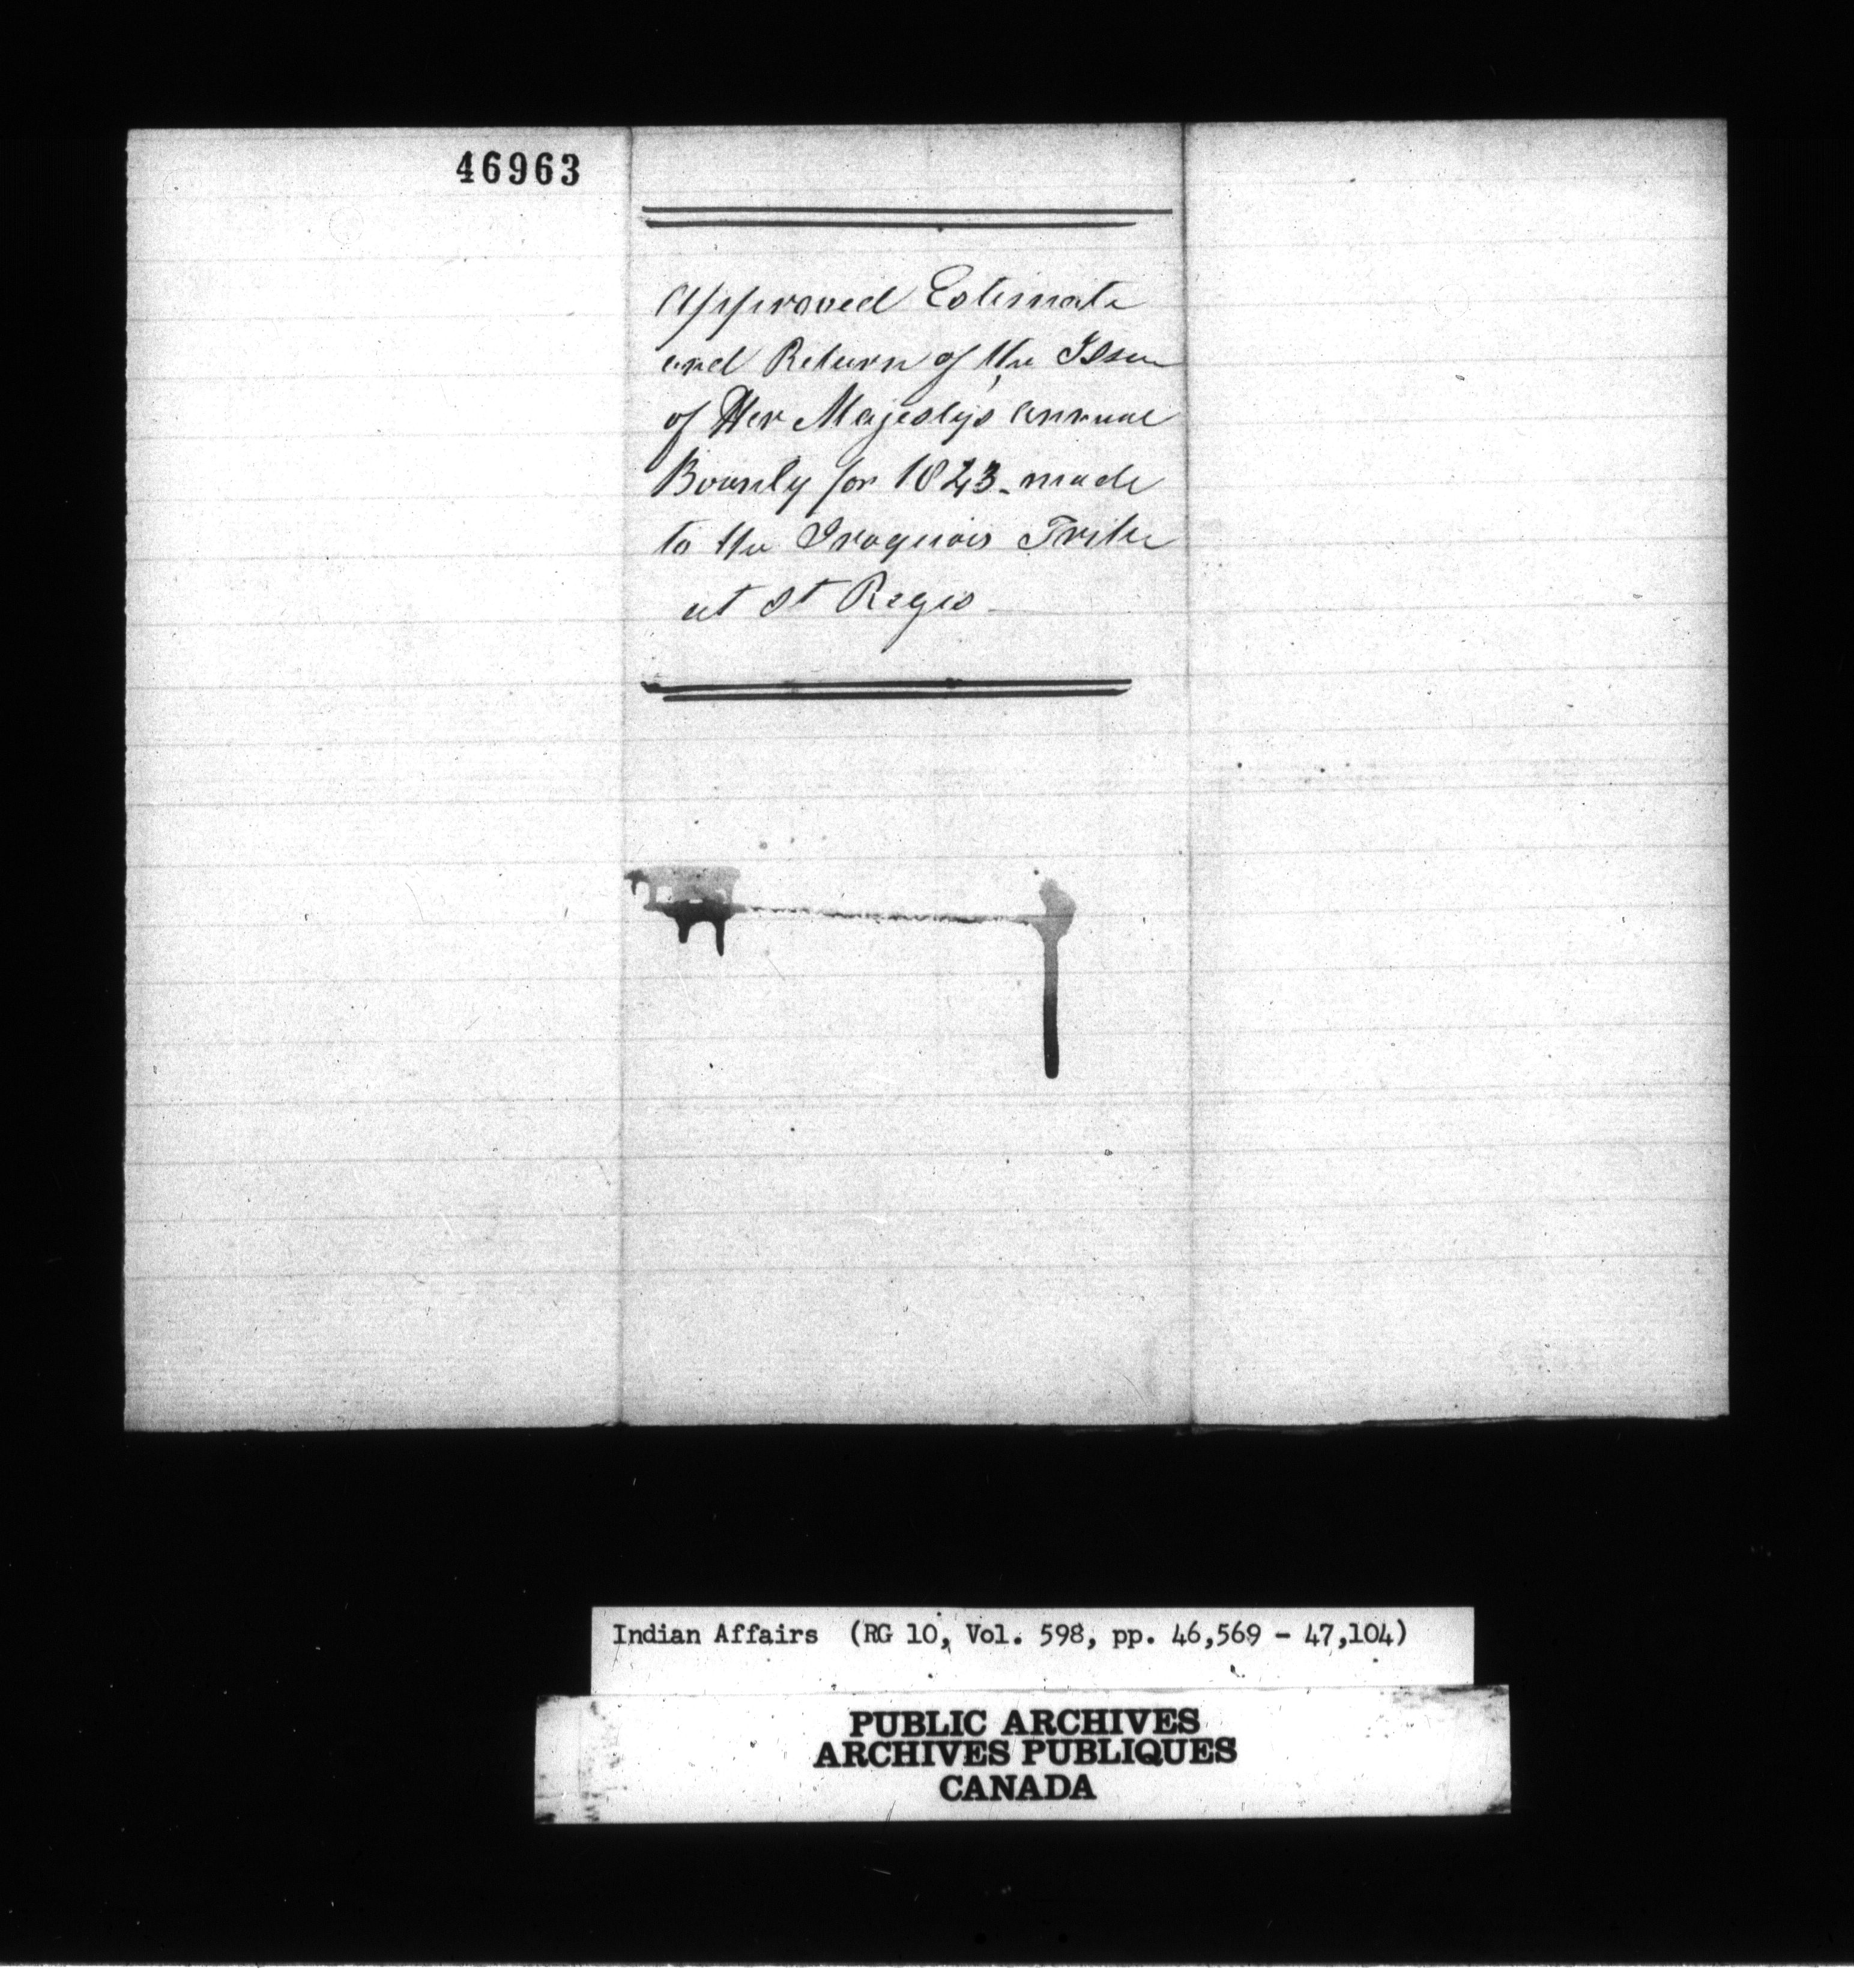 46963
Approved Estimate
and Return of the Issue
of Her Majestys annual
Bounty for 1843 made
to the Iroquois Tribe
at St Regis
Indian Affairs (RG 10, Vol. 598, pp. 46,569 - 47,104)
PUBLIC ARCHIVES
ARCHIVES PUBLIQUES
CANADA